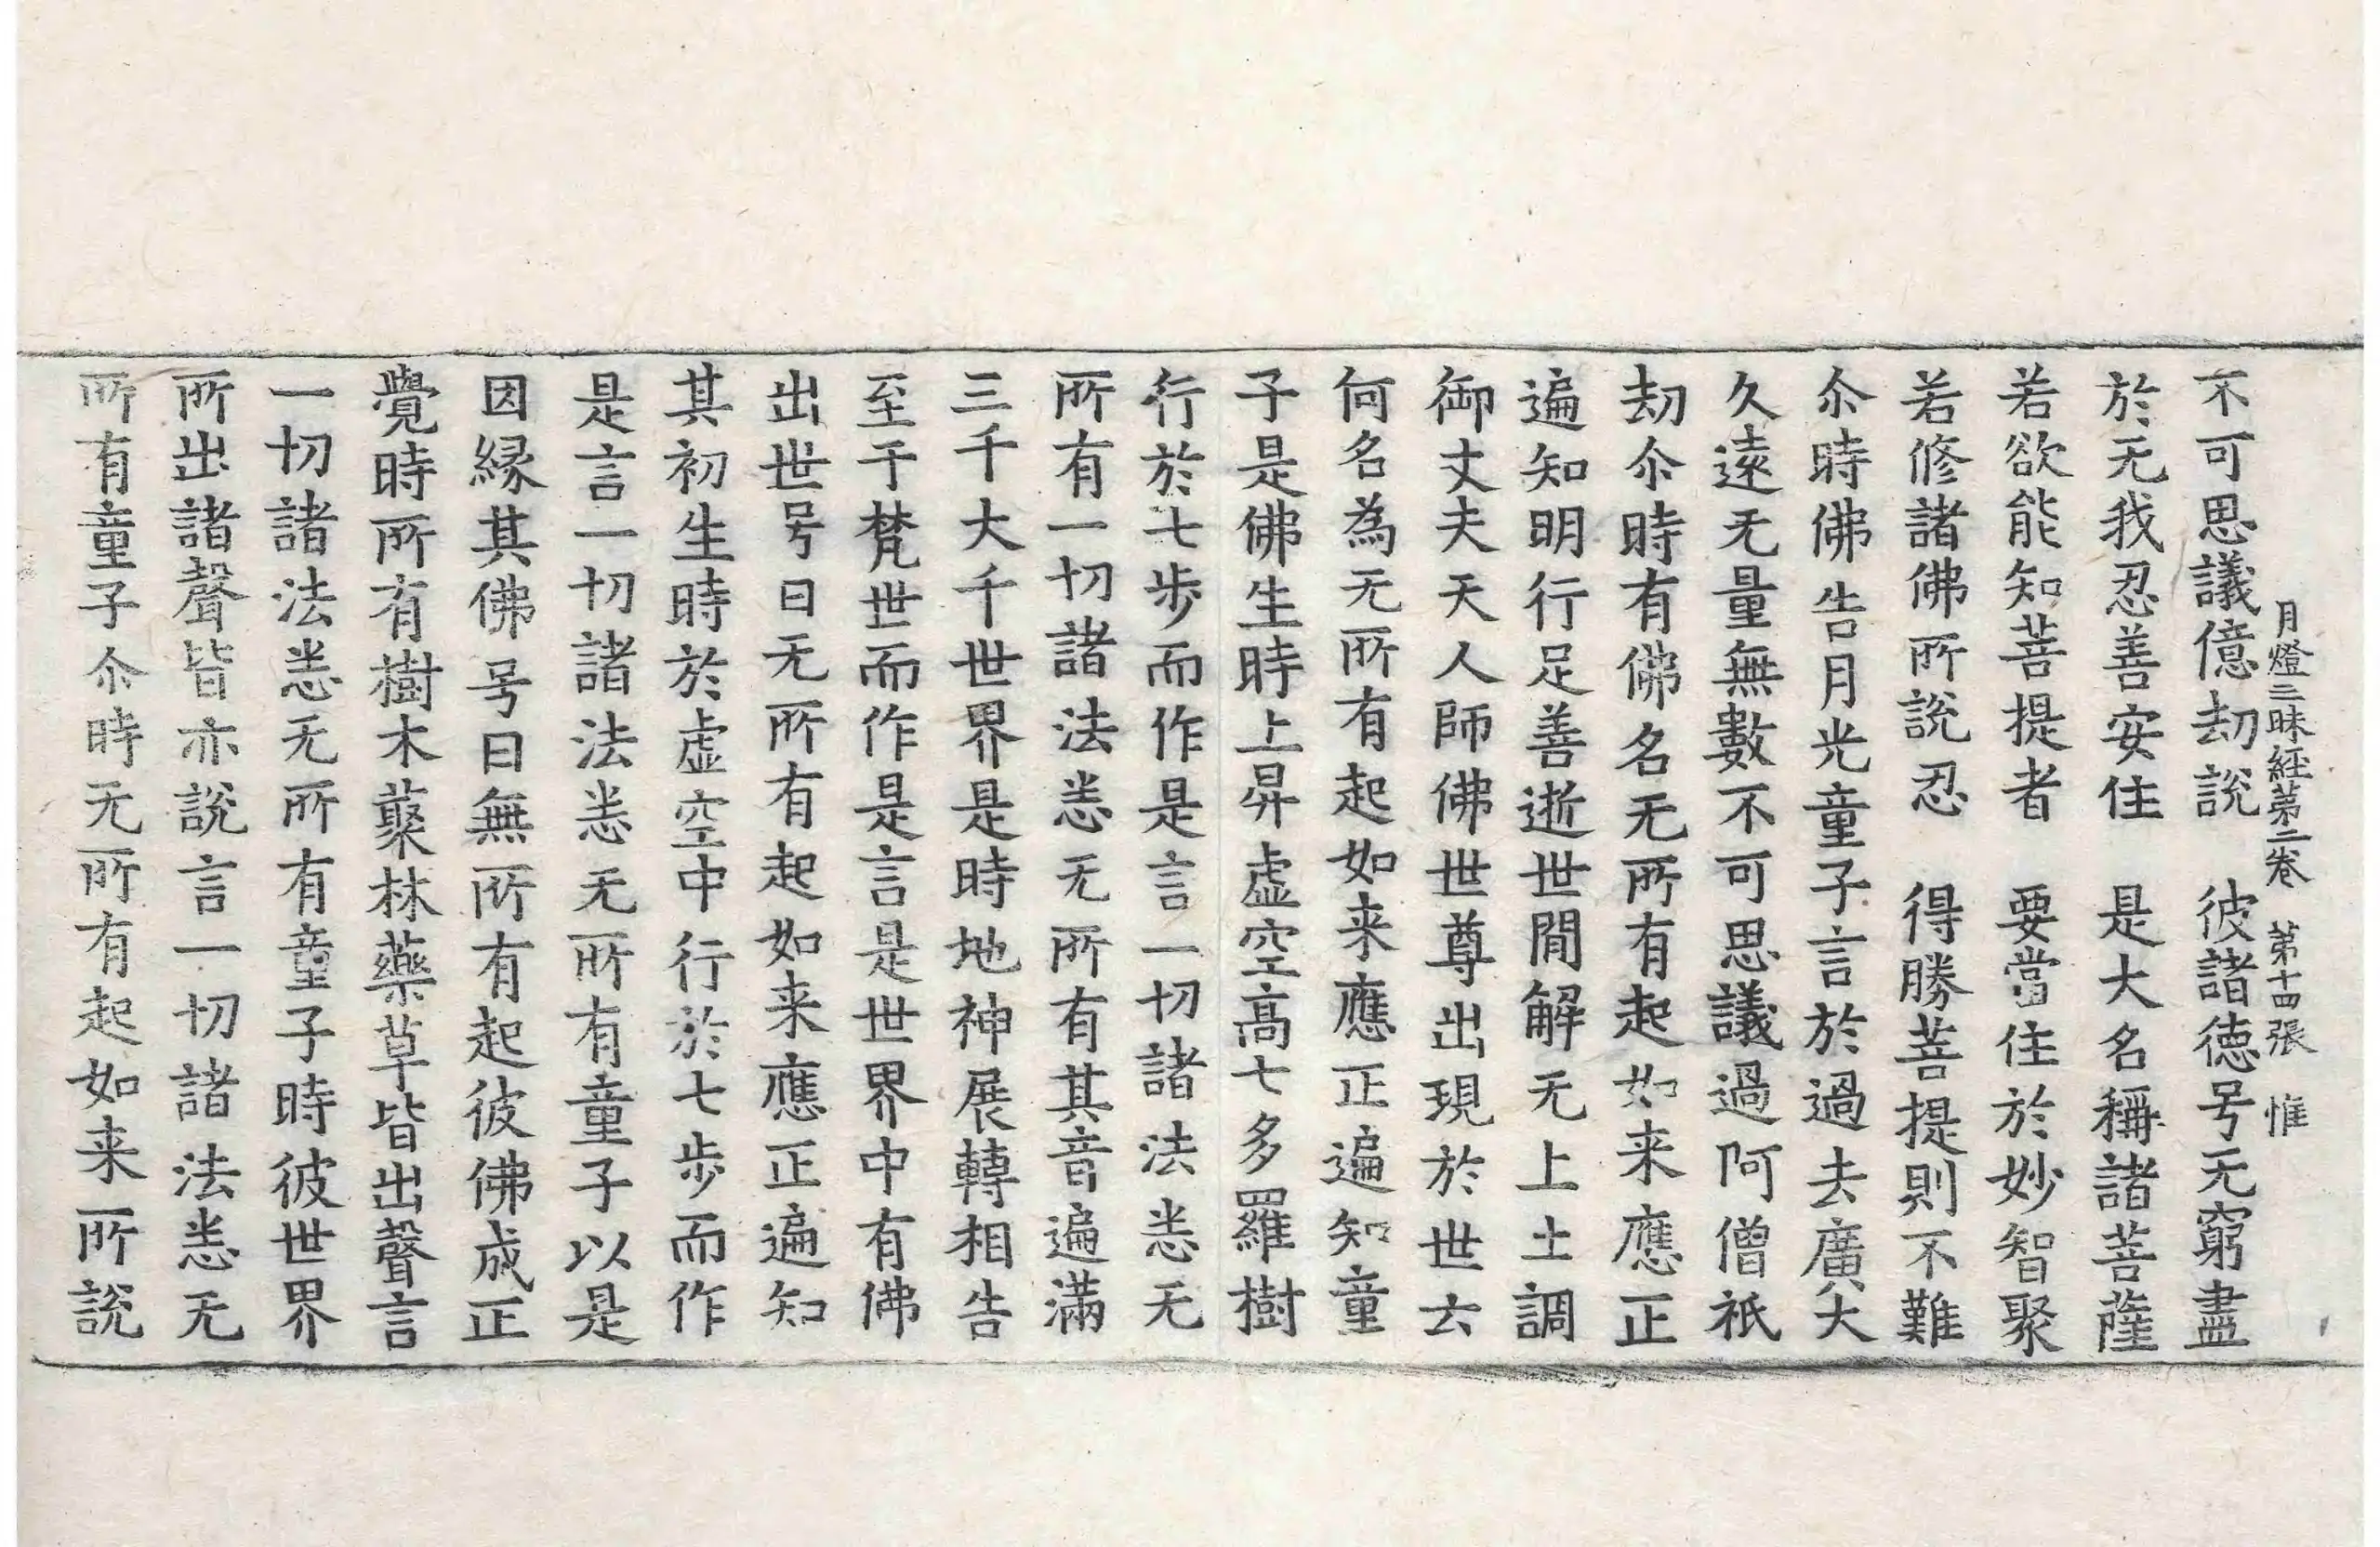 月燈三昧経苐二卷　苐十四張　惟
不可思議億劫說　彼諸德号无窮盡
於无我忍善安住　是大名稱諸菩薩
若欲能知菩提者　要當住於妙智聚
若修諸佛所說忍　得勝菩提則不難
尒時佛告月光童子言於過去廣大
久遠无量無數不可思議過阿僧祇
劫尒時有佛名无所有起如来應正
遍知明行足善逝世閒解无上士調
御丈夫天人師佛世尊出現於世云
何名為无所有起如来應正遍知童
子是佛生時上昇虛空高七多羅樹
行於七步而作是言一切諸法悉无
所有一切諸法悉无所有其音遍滿
三千大千世界是時地神展轉相告
至于梵世而作是言是世界中有佛
出世号曰无所有起如来應正遍知
其初生時於虛空中行於七步而作
是言一切諸法悉无所有童子以是
因縁其佛号曰無所有起彼佛成正
覺時所有樹木藂林藥草皆出聲言
一切諸法悉无所有童子時彼世界
所出諸聲皆亦說言一切諸法悉无
所有童子尒時无所有起如来所說